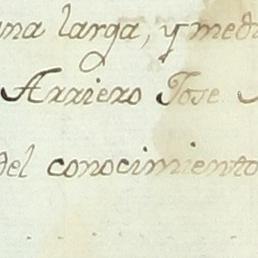 una larga, y medi
Arriero Jose
del conocimiento